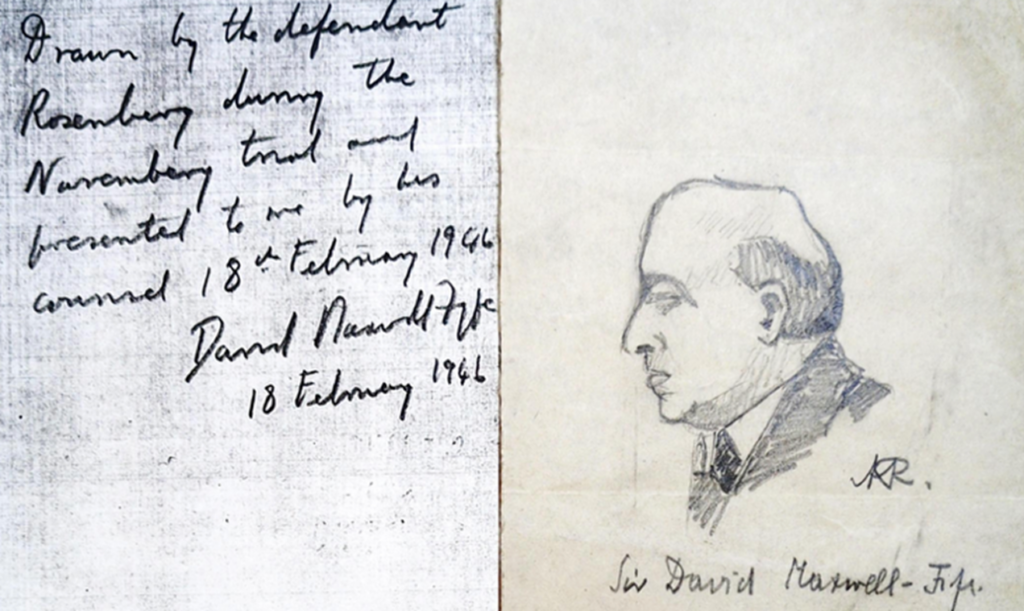 Drawn by the defendant
Rosenberg during the
Nuremberg trial and
presented to me by his
counsel 18th February 1946
David Maxwell Fyfe
18 February 1946
AR.
Sir David Maxwell-Fife.